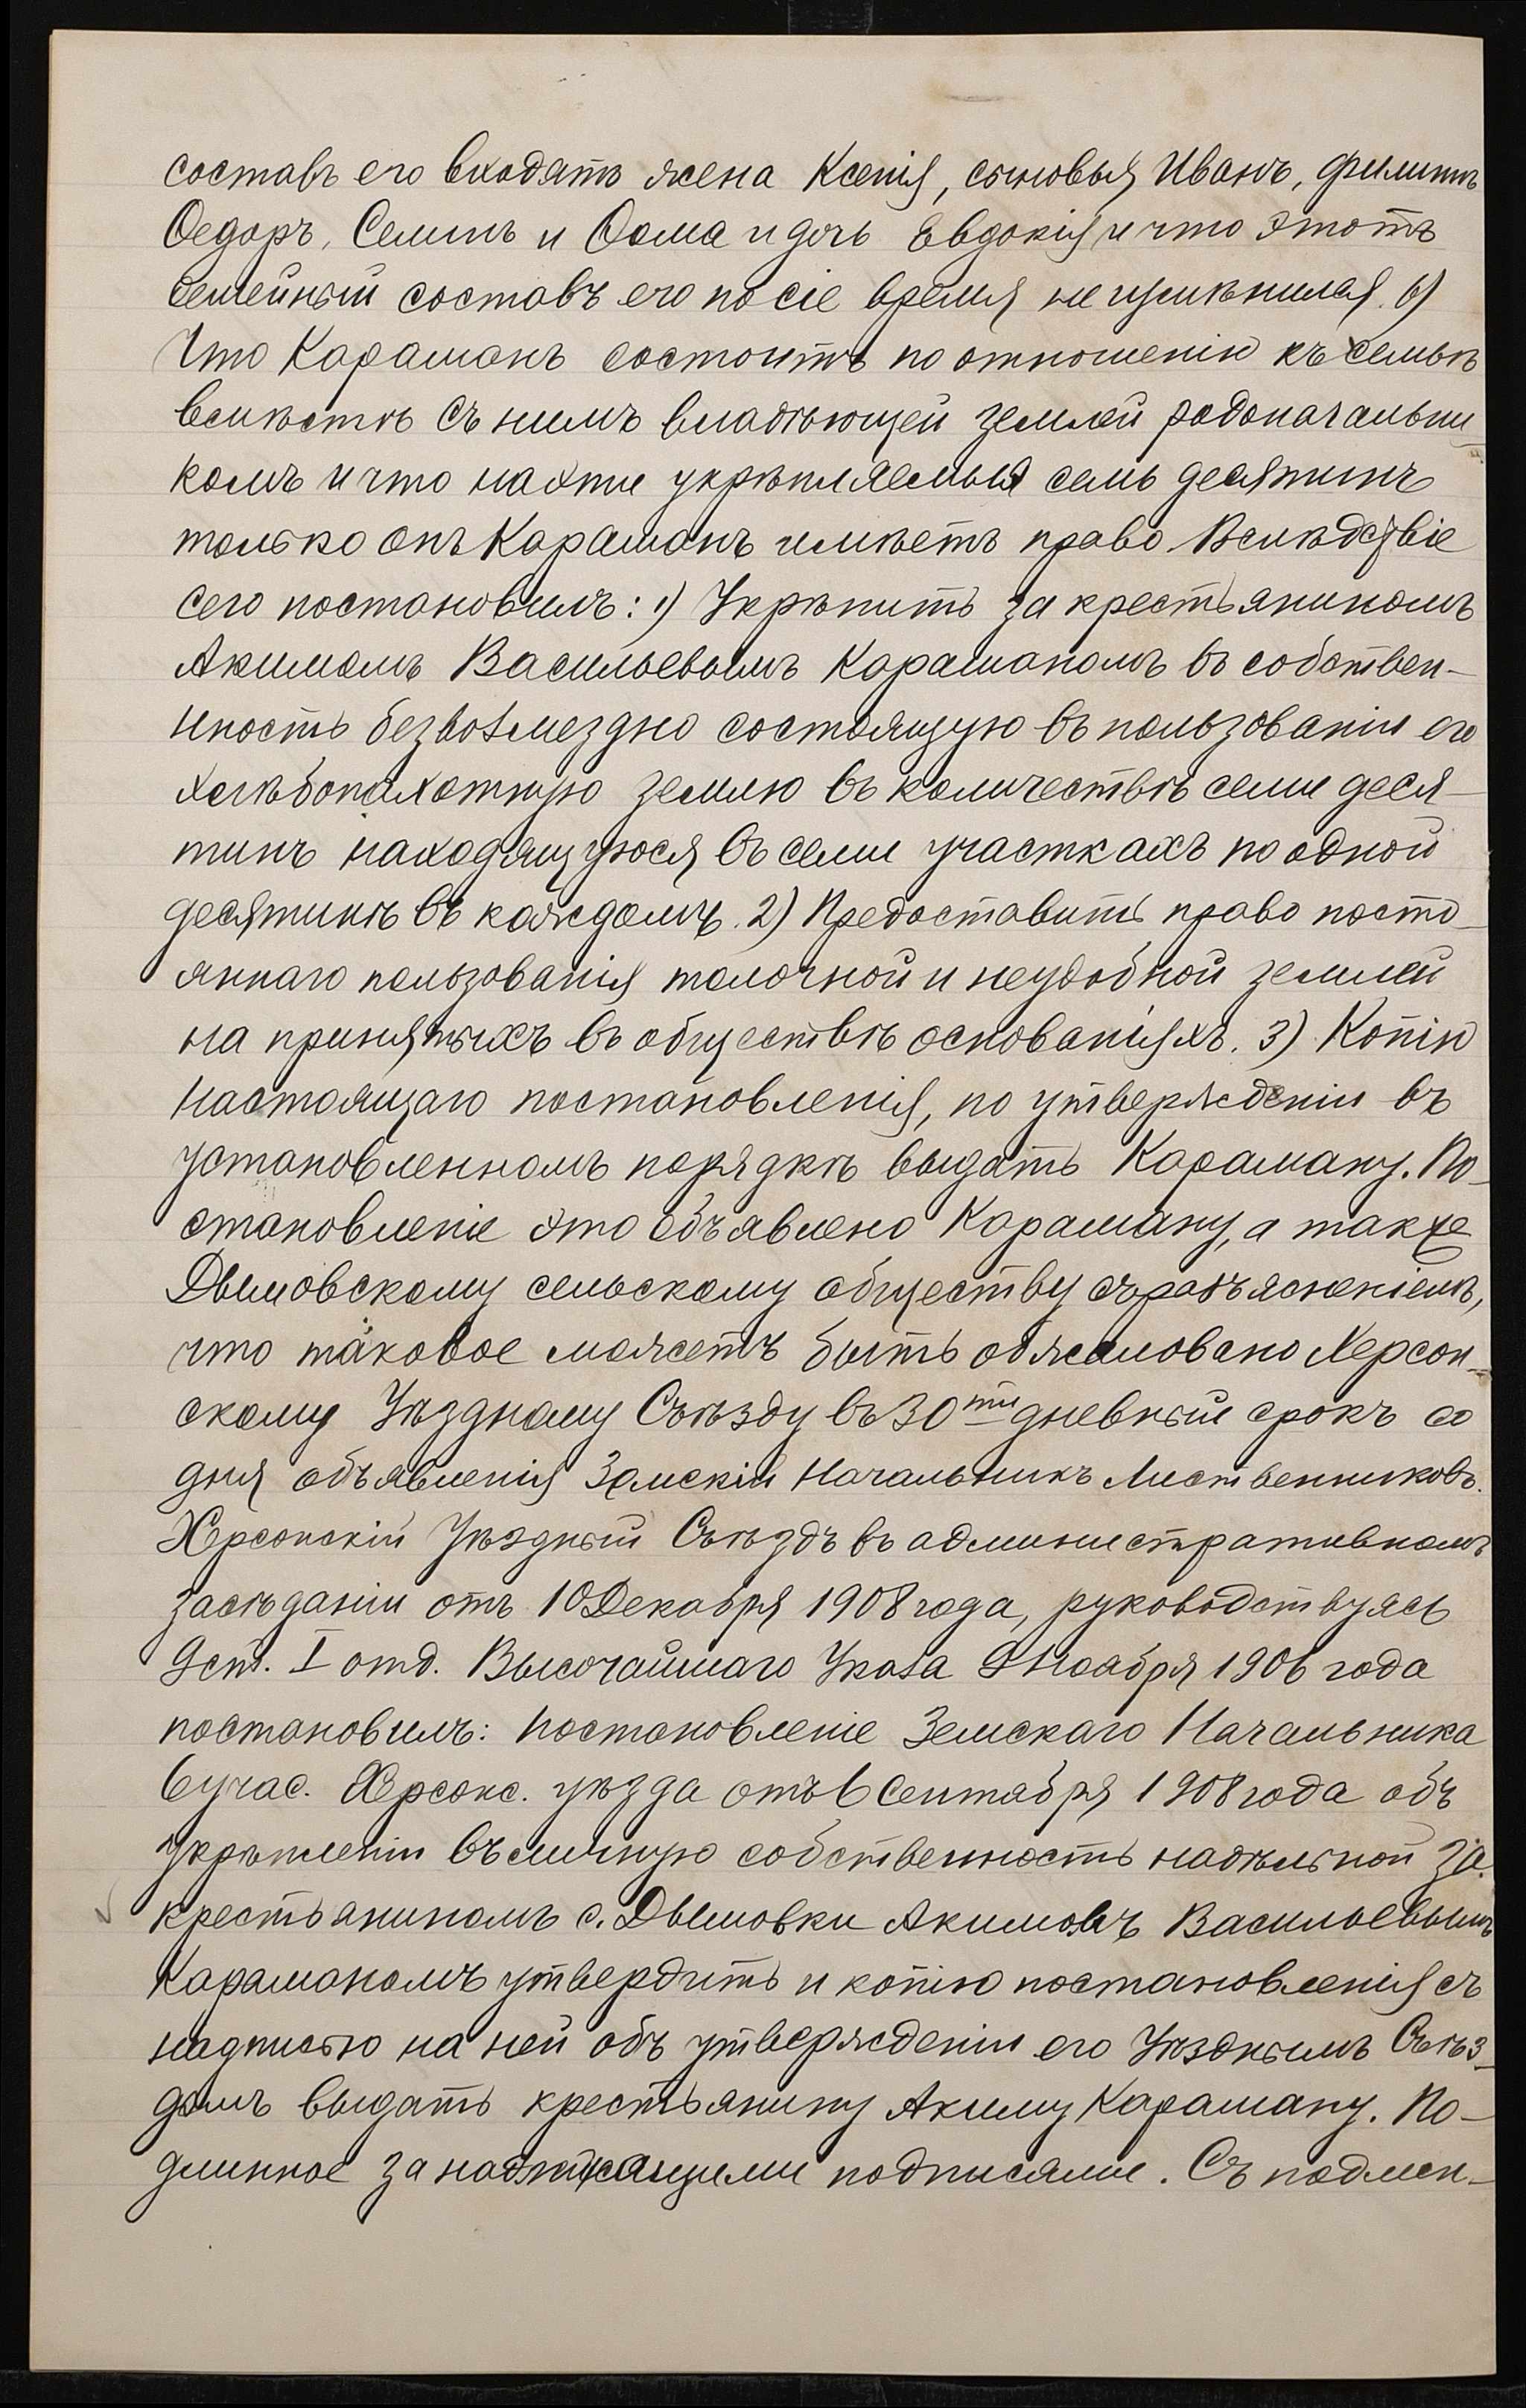 составъ его входятъ жена Ксенія, сыновья Иванъ, Филиппъ
Ѳедоръ, Семенъ и Ѳома и дочь Евдокія и что этотъ
семейный составъ его по сіе время не измѣнился. 6)
Что Караманъ состоитъ по отношенію къ семьѣ
вмѣстѣ съ нимъ владѣющей землей родоначальни-
комъ и что на эти укрѣпляемыя семь десятинъ
только онъ Караманъ имѣетъ право. Вслѣдствіе
сего постановилъ: 1) Укрѣпить за крестьяниномъ
Акимомъ Васильевымъ Караманомъ въ собствен-
ность безвозмездно состоящую въ пользованіи его
хлѣбопахотную землю въ количествѣ семи деся-
тинъ находящуюся въ семи участкахъ по одной
десятинѣ въ каждомъ. 2) Предоставить право посто-
яннаго пользованія толочной и неудобной землей
на принятыхъ въ обществѣ основаніяхъ. 3) Копію
настоящаго постановленія, по утвержденіи въ
установленномъ порядкѣ выдать Караману. По-
становленіе это объявлено Караману, а также
Дымовскому сельскому обществу съ разъясненіемъ,
что таковое можетъ быть обжаловано Херсон-
скому Уѣздному Съѣзду въ 30ти дневный срокъ со
дня объявленія Земскій Начальникъ Лиственниковъ.
Херсонскій Уѣздный Съѣздъ въ административномъ
засѣданіи отъ 10 Декабря 1908 года, руководствуясь
9 ст. I отд. Высочайшаго Указа 9 Ноября 1906 года
постановилъ: постановленіе Земскаго Начальника
6 учас. Херсонс. уѣзда отъ 6 Сентября 1908 года объ
укрѣпленіи въ личную собственность надѣльной за
крестьяниномъ с. Дымовки Акимомъ Васильевымъ
Караманомъ утвердить и копію постановленія съ
надписью на ней объ утвержденіи его Уѣзднымъ Съѣз-
домъ выдать крестьянину Акиму Караману. По-
длинное за надлежащими подписями. Съ подлин-